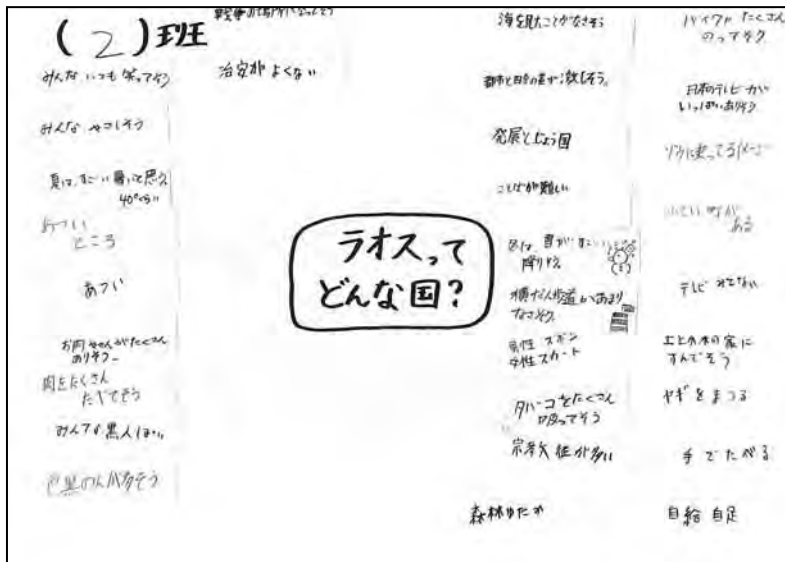 (2)班
みんないつも笑ってそう
みんなやさしそう
夏は、すごい暑いと思う。
40°くらい
あつい
ところ
あつい
お肉やさんがたくさん
ありそう
肉をたくさん
たべてそう
みんな黒人ぽい
色黒の人が多そう
治安がよくない
ラオスって
どんな国?
海を見たことがなさそう
都市と田舎の差が激しそう。
発展とじょう国
ことばが難しい
降りそう
横だん歩道があまり
なさそう。
男性 ズボン
女性 スカート
タバコをたくさん
吸ってそう
宗教
が多い
森林ゆたか
バイクがたくさん
のってそう
日本のテレビが
いっぱいありそう
ゾウに乗ってるイメージ
小さい町が
ある
テレビ
土と木の家に
すんでそう
ヤギをまつる
手でたべる
自給自足